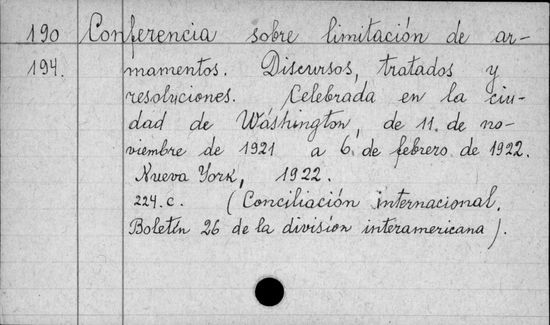 190 Conferencia sobre limitación de ar-
194. mamentos. Discursos, tratados y
resoluciones. Celebrada en la ciu-
dad de Wáshington, de 11. de no-
viembre de 1921 a 6. de febrero de 1922.
Nueva York, 1922.
224. c. (Conciliación internacional.
Boletín 26 de la división interamericana).